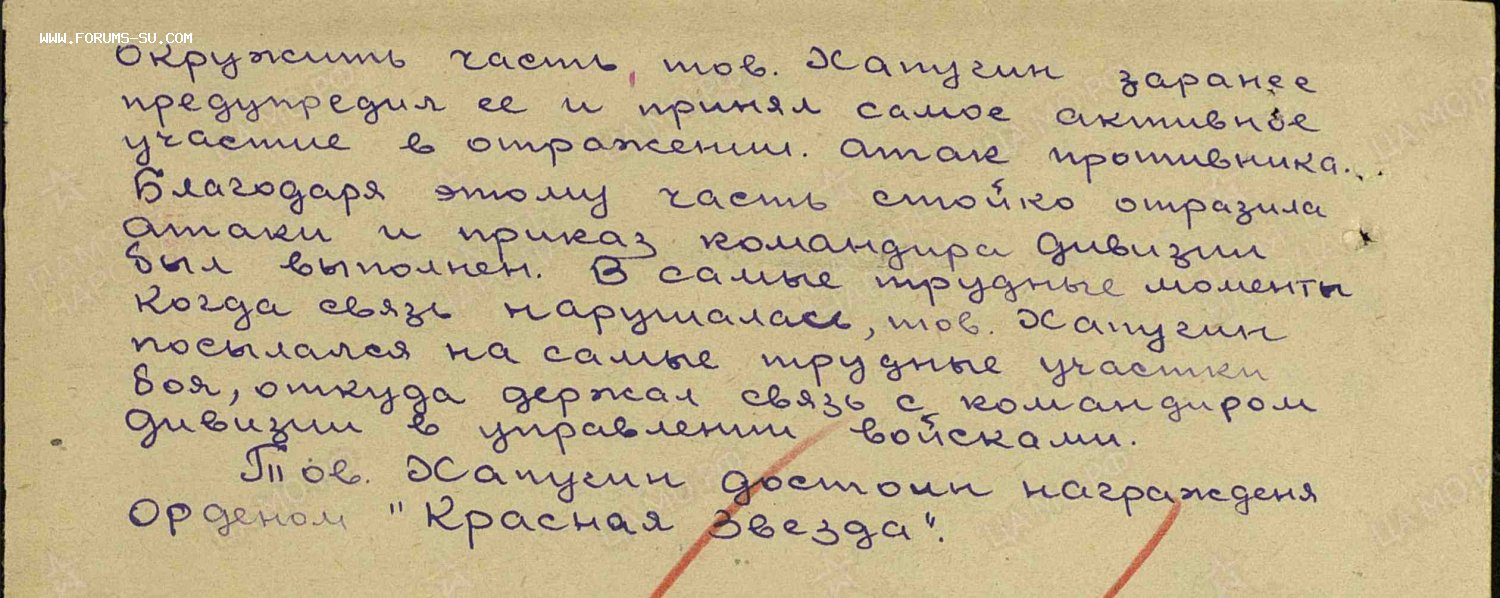 WWW.FORUMS-SU.COM
Окружить часть, тов. Хапугин заранее
предупредил ее и принял самое активное
участие в отражении. атак противника...
Благодаря этому часть стойко отразила
атаки и приказ командира дивизии
был выполнен. В самые трудные моменты
когда связь нарушалась, тов. Хапугин
посылался на самые трудные участки
боя, откуда держал связь с командиром
дивизии в управлении войсками.
Тов. Хапугин достоин награжденя
Орденом "Красная Звезда".